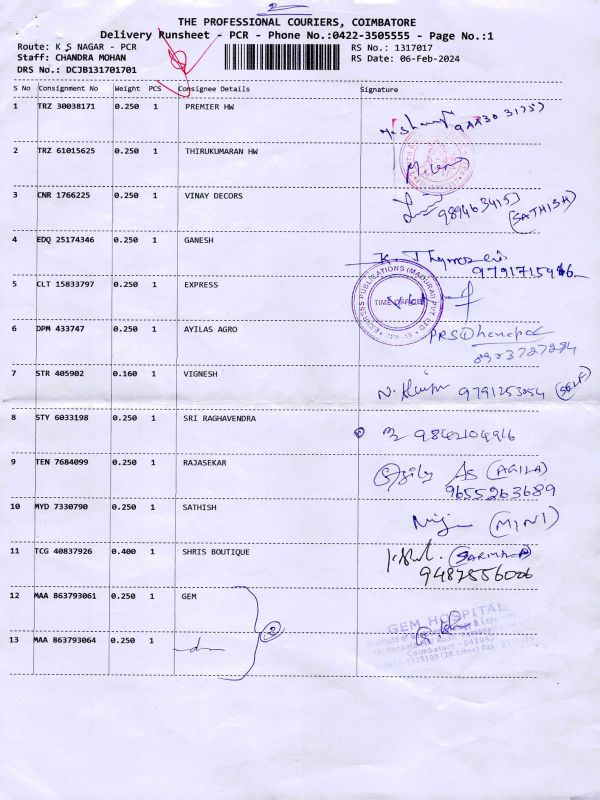 THE PROFESSIONAL COURIERS, COIMBATORE
Delivery Runsheet - PCR - Phone No.:0422-3505555 - Page No.:1
Route: K S NAGAR - PCR RS No.: 1317017
Staff: CHANDRA MOHAN RS Date: 06-Feb-2024
DRS No.: DCJB131701701
S No Consignment No Weight PCS Consignee Details Signature
1 TRZ 30038171 0.250 1 PREMIER HW
2 TRZ 61015625 0.250 1 THIRUKUMARAN HW
3 CNR 1766225 0.250 1 VINAY DECORS
(SATHISH)
4 EDQ 25174346 0.250 1 GANESH
5 CLT 15833797 0.250 1 EXPRESS
EXPRESS PUBLICATIONS (MADURAI) PVT LTD
TIME OFFICE
6 DPM 433747 0.250 1 AYILAS AGRO
7 STR 405902 0.160 1 VIGNESH 9791253054 (SELF)
8 STY 6033198 0.250 1 SRI RAGHAVENDRA 9842104916
9 TEN 7684099 0.250 1 RAJASEKAR (AGILA)
9655263689
10 MYD 7330790 0.250 1 SATHISH (MINI)
11 TCG 40837926 0.400 1 SHRIS BOUTIQUE
9487556006
12 MAA 863793061 0.250 1 GEM
2
GEM HOSPITAL
Coimbatore - 641045
13 MAA 863793064 0.250 1